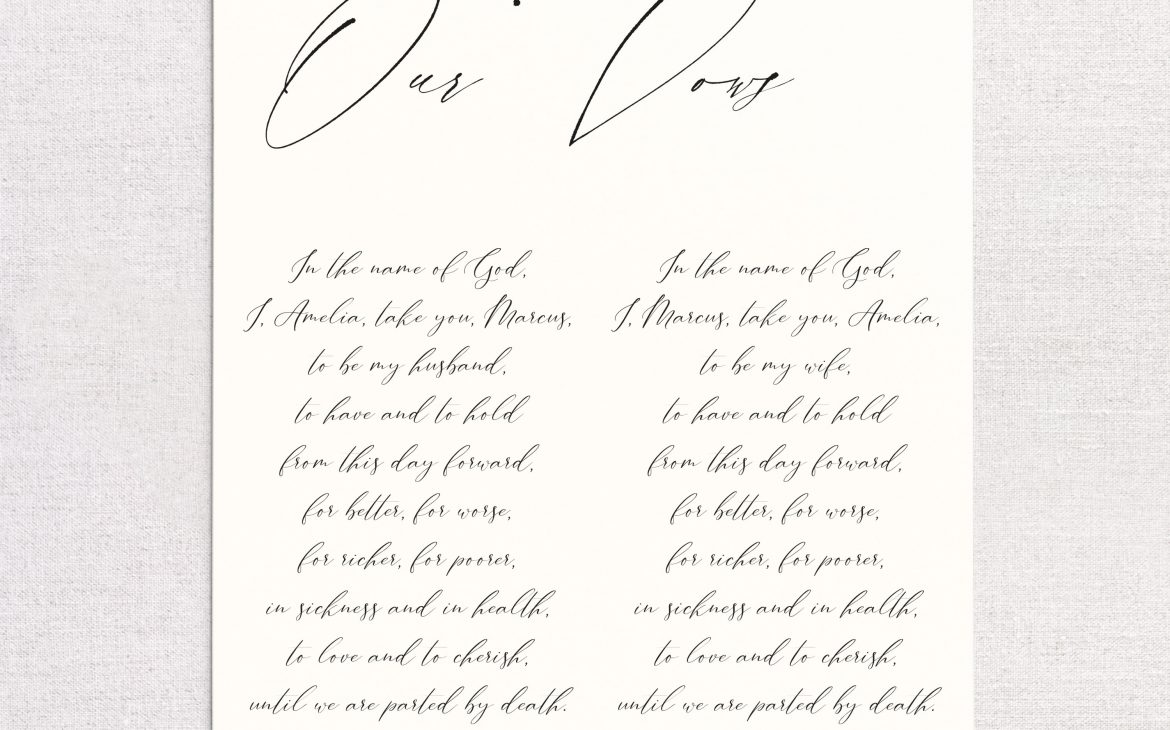 Our Vows
In the name of God,
I, Amelia, take you, Marcus,
to be my husband,
to have and to hold
from this day forward,
for better, for worse,
for richer, for poorer,
in sickness and in health,
to love and to cherish,
until we are parted by death.
In the name of God,
I, Marcus, take you, Amelia,
to be my wife,
to have and to hold
from this day forward,
for better, for worse,
for richer, for poorer,
in sickness and in health,
to love and to cherish,
until we are parted by death.